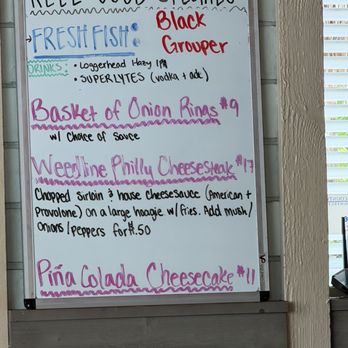 REEL GOOD SPECIALS
→FRESH FISH: Black
Grouper
DRINKS: • Loggerhead Hazy IPA
• SUPERLYTES (vodka + ade)
Basket of Onion Rings $9
w/ Choice of Sauce
Weedline Philly Cheesesteak $17
Chopped Sirloin & house cheese sauce (American +
provolone) on a large hoagie w/ fries. Add mush/
Onions/peppers for $1.50
Piña Colada Cheesecake $11